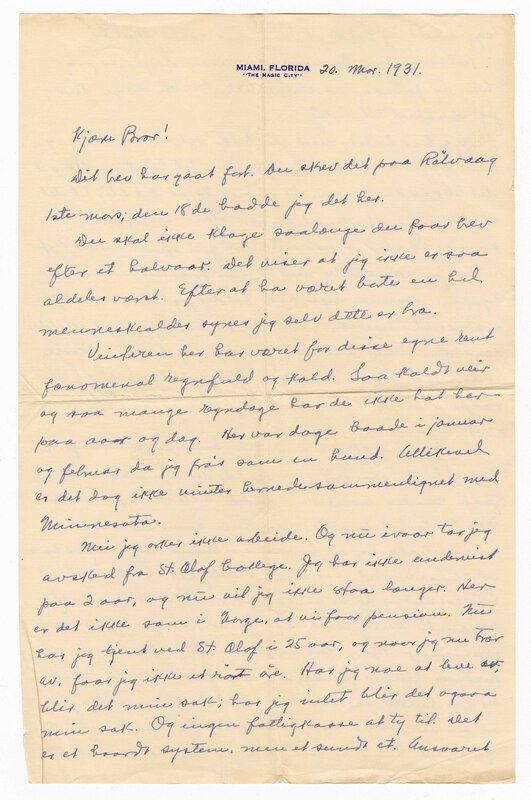 MIAMI, FLORIDA
"THE MAGIC CITY"
20. Mar. 1931.
Kjære Bror!
Dit brev har gaat fort. Du skrev det paa Rølvaag
1ste mars; den 18de hadde jeg det her.
Du skal ikke klage saalænge du faar brev
efter et halvaar. Det viser at jeg ikke er saa
aldeles værst. Efter at ha været borte en hel
menneskealder synes jeg selv dette er bra.
Vinteren her har været for disse egne rent
fenomenal regnfuld og kold. Saa koldt veir
og saa mange regndage har de ikke hat her
paa aar og dag. Her var dage baade i januar
og februar da jeg frøs som en hund. Allikevel
er det dog ikke vinter hernede sammenlignet med
Minnesota.
Nei jeg orker ikke arbeide. Og nu ivaar tar jeg
avsked fra St. Olaf College. Jeg har ikke undervist
paa 2 aar, og nu vil jeg ikke staa længer. Her
er det ikke som i Norge, at vi faar pension. Nu
har jeg tjent ved St. Olaf i 25 aar, og naar jeg nu trær
av, faar jeg ikke et rødt øre. Har jeg noe at leve av,
blir det min sak; har jeg intet blir det ogsaa
min sak. Og ingen fattigkasse at ty til. Det
er et haardt system, men et sundt et. Ansvaret